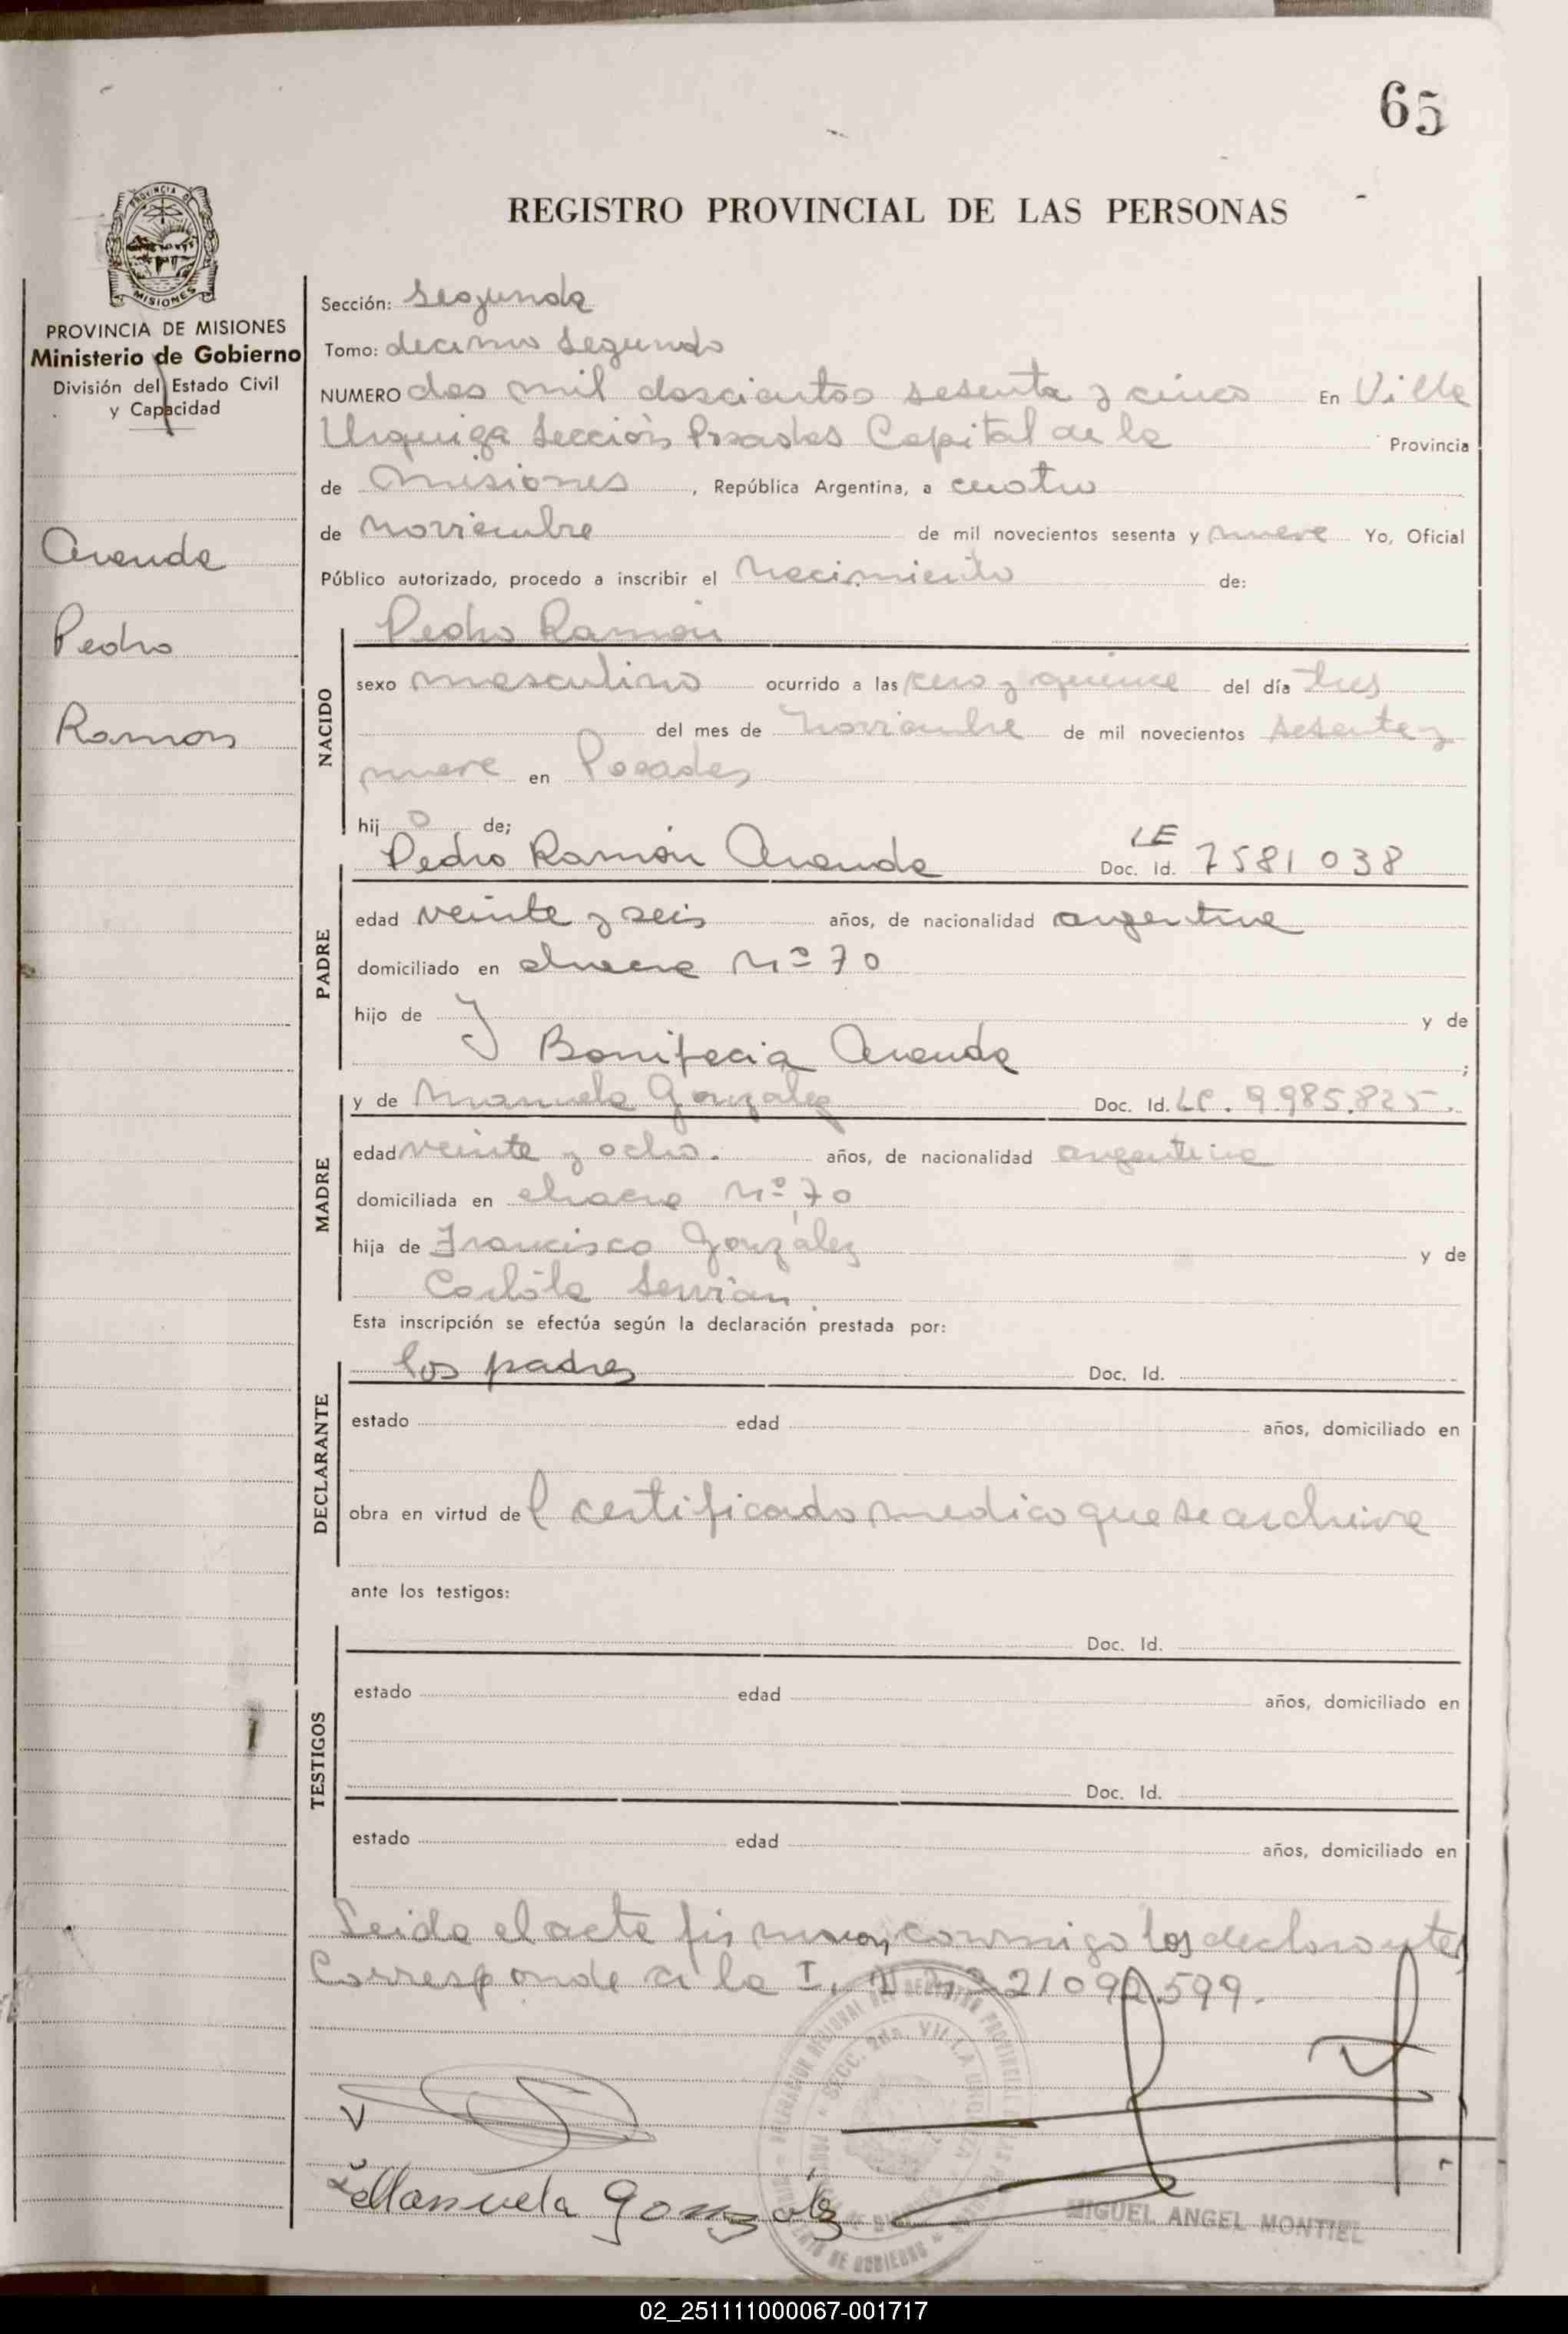 65
REGISTRO PROVINCIAL DE LAS PERSONAS
PROVINCIA DE MISIONES
Ministerio de Gobierno
División del Estado Civil
y Capacidad
Arenda
Pedro
Ramon
Sección: Segunda
Tomo: decimo segundo
NUMERO dos mil doscientos sesenta y cinco En Villa
Urquiza Sección Posadas Capital de la Provincia
de Misiones, República Argentina, a cuatro
de noviembre de mil novecientos sesenta y nueve Yo, Oficial
Público autorizado, procedo a inscribir el Nacimiento de:
NACIDO
Pedro Ramón
sexo masculino ocurrido a las cero y quince del día tres
del mes de Noviembre de mil novecientos sesenta y
nueve en Posadas
hij o de;
PADRE
LE
Pedro Ramón Arenda Doc. Id. 7581038
edad veinte y seis años, de nacionalidad argentina
domiciliado en chacra Nº 70
hijo de y de
Bonifacia Arenda ;
MADRE
y de Manuela González Doc. Id. LC. 9.985.825.
edad veinte y ocho. años, de nacionalidad argentina
domiciliada en chacra Nº 70
hija de Francisco González y de
Carlóta Servian.
Esta inscripción se efectúa según la declaración prestada por:
DECLARANTE
los padres Doc. Id.
estado edad años, domiciliado en
obra en virtud del certificado medico que se archiva
ante los testigos:
TESTIGOS
Doc. Id.
estado edad años, domiciliado en
Doc. Id.
estado edad años, domiciliado en
Leida el acta firman conmigo los declarantes
Corresponde a la I. 21092.599.
Manuela González
MIGUEL ANGEL MONTIEL
02_251111000067-001717